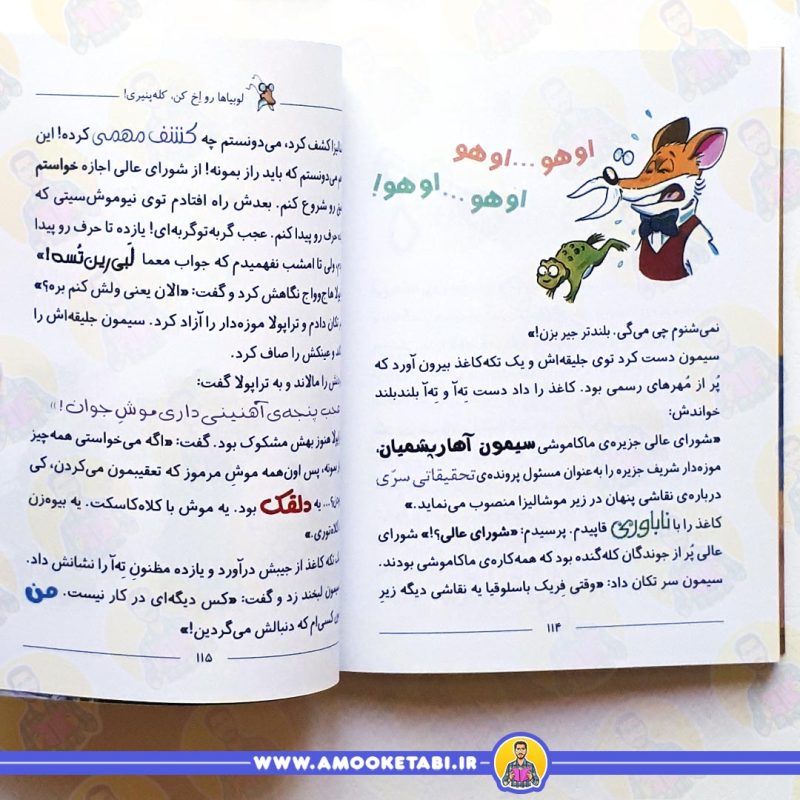 اوهو...اوهو
اوهو...اوهو!
نمی‌شنوم چی می‌گی. بلندتر جیر بزن!»
سیمون دست کرد توی جلیقه‌اش و یک تکه‌کاغذ بیرون آورد که
پُر از مُهرهای رسمی بود. کاغذ را داد دست تِه‌آ و تِه‌آ بلندبلند
خواندش:
«شورای عالی جزیره‌ی ماکاموشی سیمون آهارپشمیان،
موزه‌دار شریف جزیره را به‌عنوان مسئول پرونده‌ی تحقیقاتی سرّی
درباره‌ی نقاشی پنهان در زیر موشالیزا منصوب می‌نماید.»
کاغذ را با ناباوری قاپیدم. پرسیدم: «شورای عالی؟!» شورای
عالی پُر از جوندگان کله‌گنده بود که همه‌کاره‌ی ماکاموشی بودند.
سیمون سر تکان داد: «وقتی فِریک باسلوقیا یه نقاشی دیگه زیرِ
۱۱۴
لوبیاها رو اِخ کن، کله‌پنیری!
کشف کرد، می‌دونستم چه کشف مهمی کرده! این
می‌دونستم که باید راز بمونه! از شورای عالی اجازه خواستم
رو شروع کنم. بعدش راه افتادم توی نیوموش‌سیتی که
حرف رو پیدا کنم. عجب گربه‌توگربه‌ای! یازده تا حرف رو پیدا
ولی تا امشب نفهمیدم که جواب معما لَبی‌رین‌تُسه!»
هاج‌وواج نگاهش کرد و گفت: «الان یعنی ولش کنم بره؟»
تکان دادم و تراپولا موزه‌دار را آزاد کرد. سیمون جلیقه‌اش را
و عینکش را صاف کرد.
را مالاند و به تراپولا گفت:
پنجه‌ی آهنینی داری موشِ جوان!»
هنوز بهش مشکوک بود. گفت: «اگه می‌خواستی همه‌چیز
بمونه، پس اون‌همه موشِ مرموز که تعقیبمون می‌کردن، کی
یه دلقک بود. یه موش با کلاه‌کاسکت. یه بیوه‌زن
تکه کاغذ از جیبش درآورد و یازده مظنونِ تِه‌آ را نشانش داد.
لبخند زد و گفت: «کس دیگه‌ای در کار نیست. من
کسی‌ام که دنبالش می‌گردین!»
۱۱۵
WWW.AMOOKETABI.IR